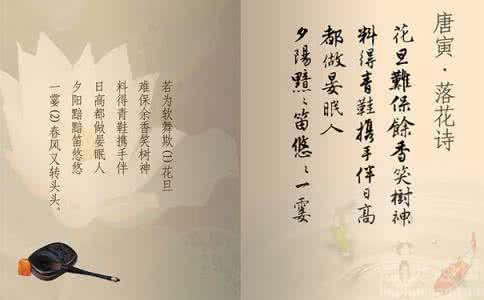 唐寅·落花诗
花旦難保餘香笑樹神
料得青鞋携手伴日高
都做晏眠人
夕陽黯〻笛悠〻一霎
若为软舞欺(1)花旦
难保余香笑树神
料得青鞋携手伴
日高都做晏眠人
夕阳黯黯笛悠悠
一霎(2)春风又转头头。